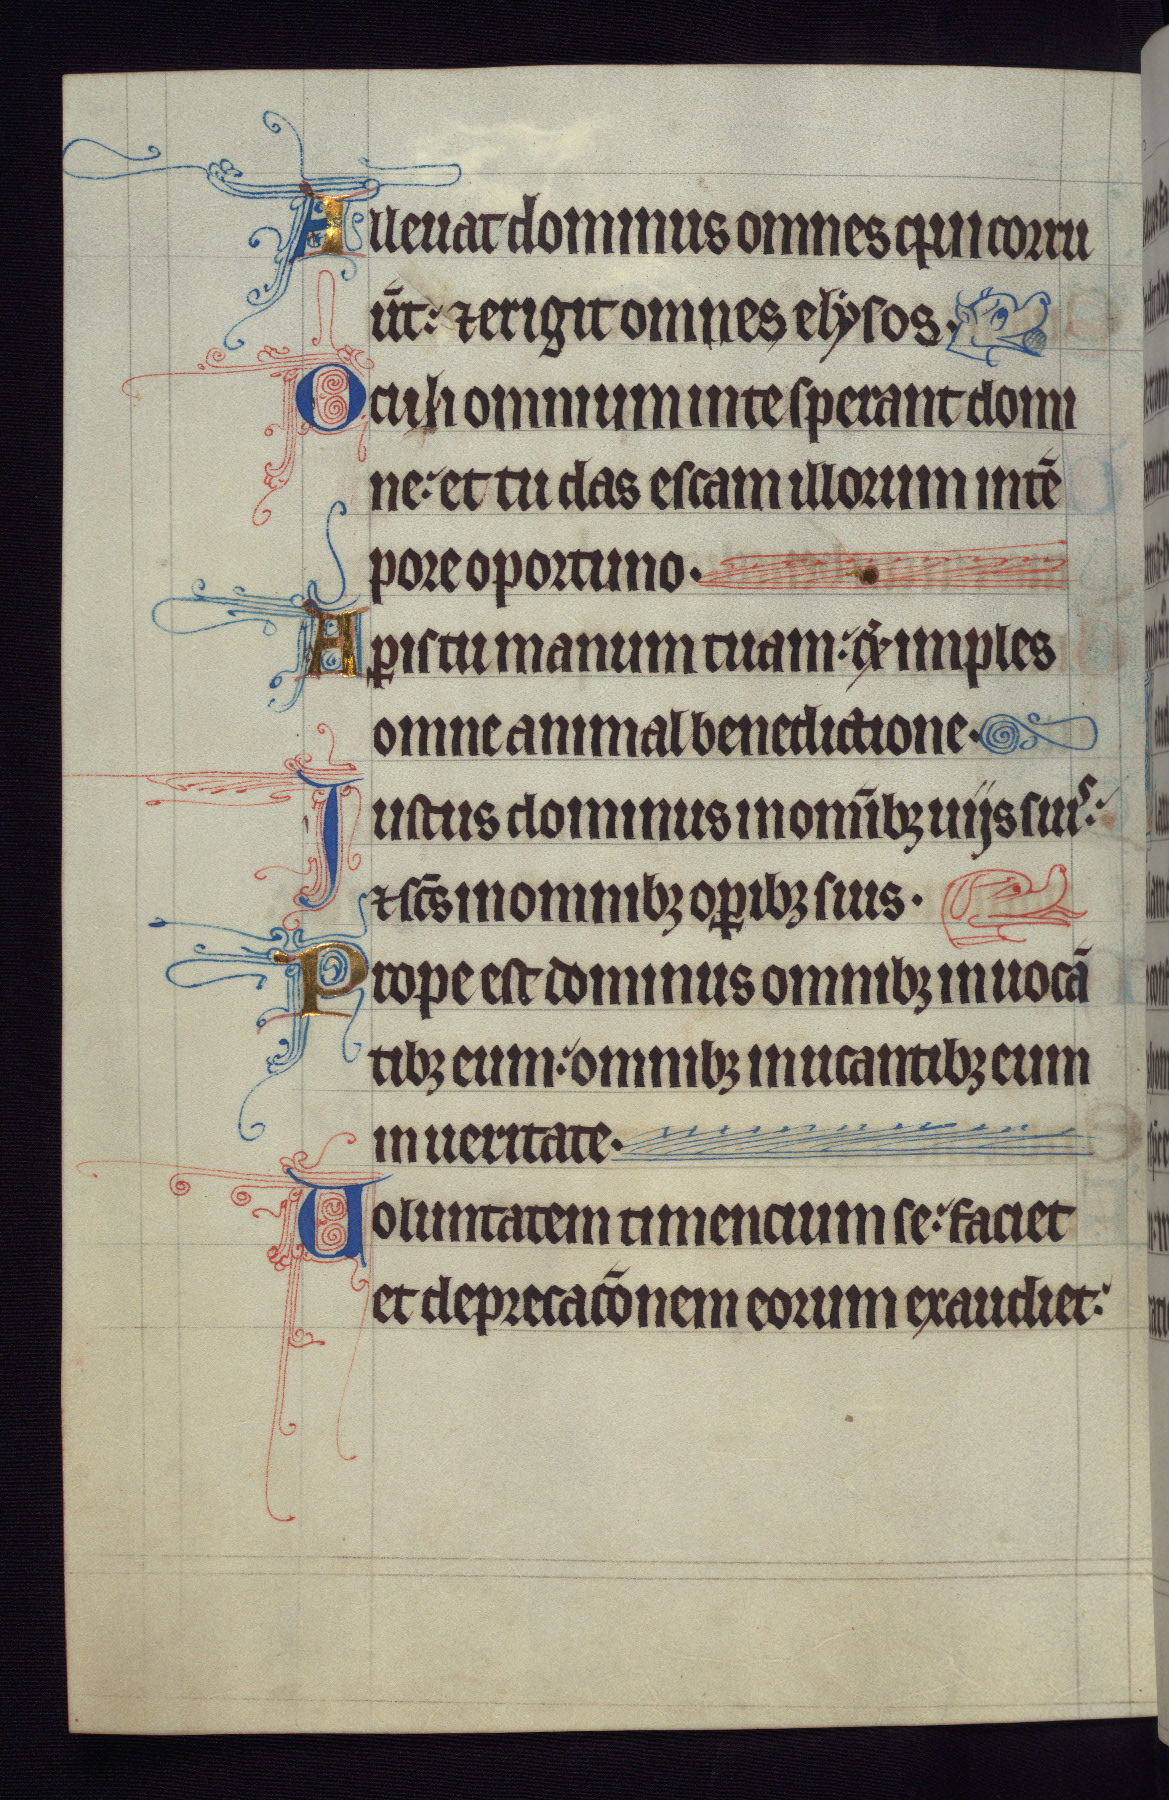 Alleuat dominus omnes qui corru
ūt: ⁊ erigit omnes elysos.
Oculi omnium in te sperant domi
ne: et tu das escam illorum in tē
pore oportuno.
Aꝑis tu manum tuam: & imples
omne animal benedictione.
Iustus dominus in omībꝫ uijs suis:
⁊ sc̄s in omnibꝫ oꝑibꝫ suis.
Prope est dominus omnibꝫ inuocā
tibꝫ eum: omnibꝫ inucantibꝫ eum
in ueritate.
Uoluntatem timencium se: faciet
et deprecac̄onem eorum exaudiet: